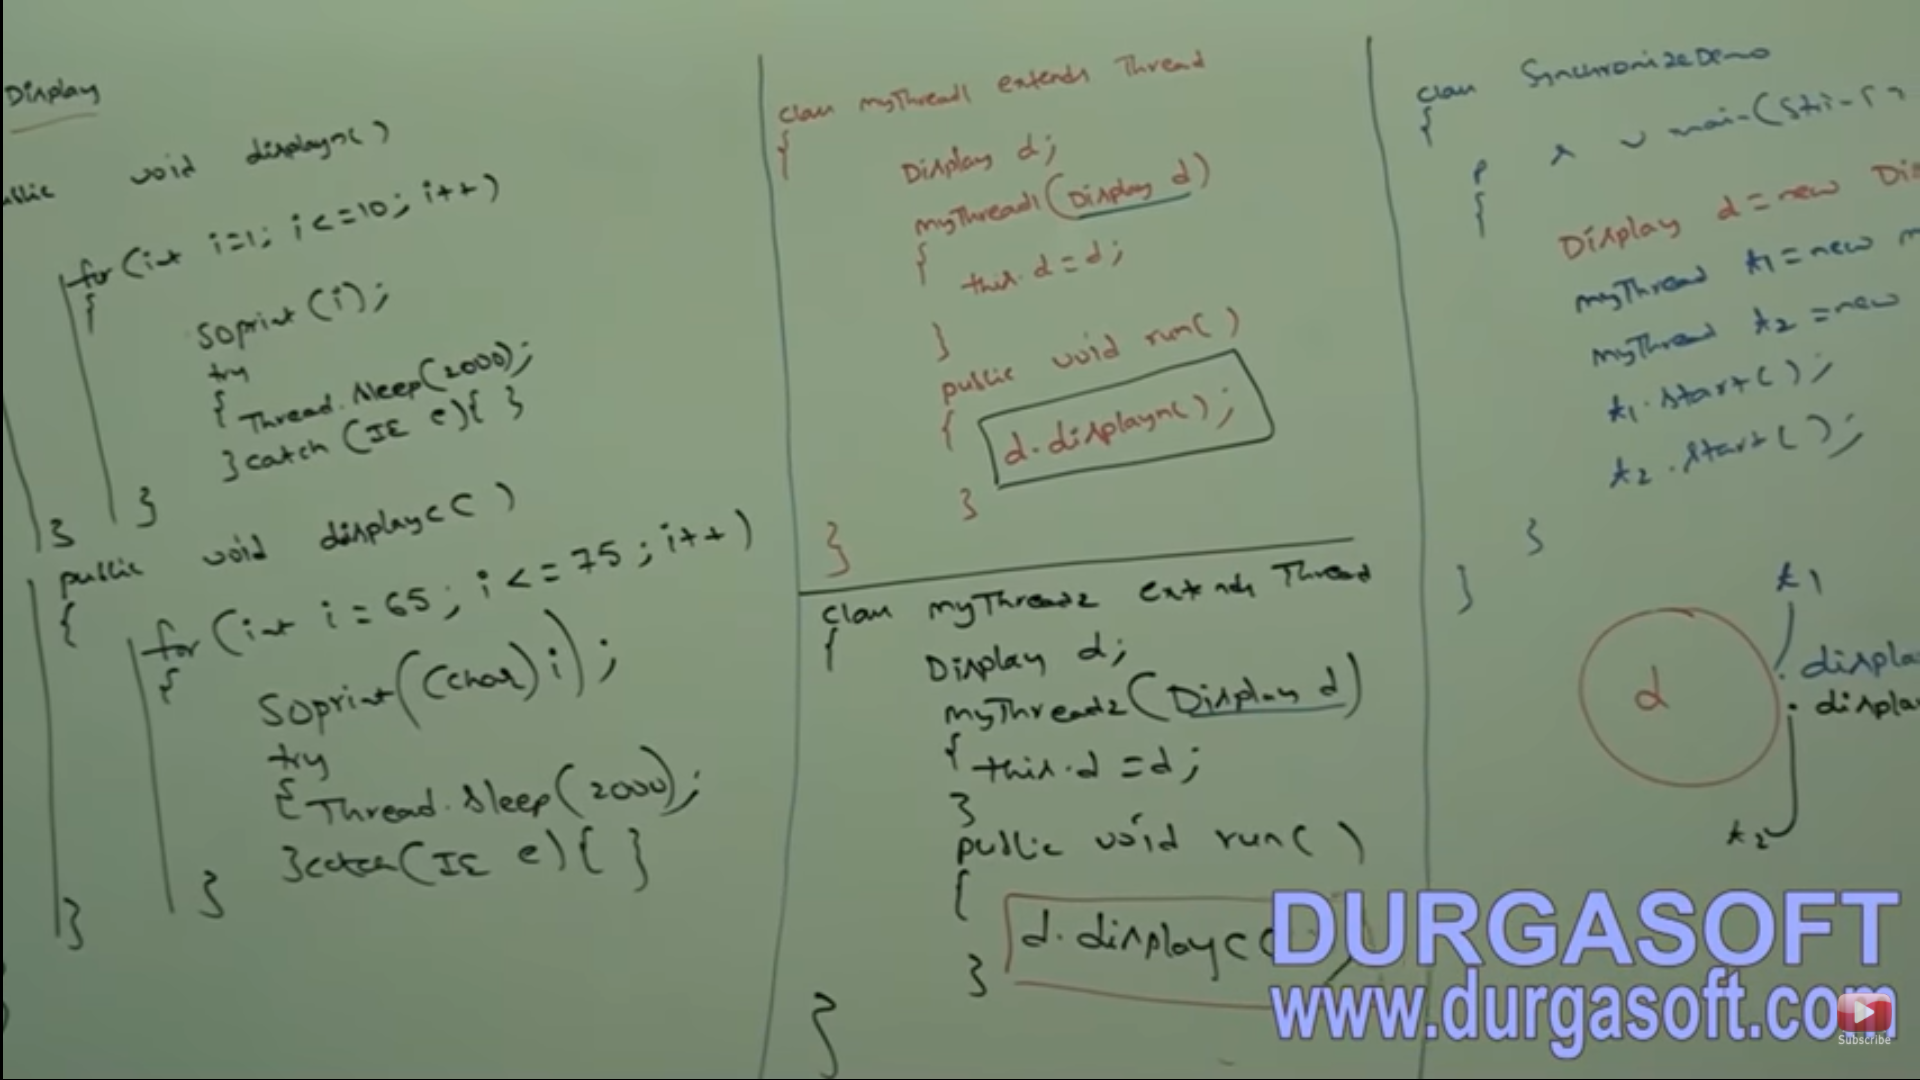 Display
void displayn()
for(int i=1; i<=10; i++)
{
SOprint(i);
try
{ Thread.sleep(2000);
}catch (IE e){ }
}
}
public void displayc()
{
for(int i=65; i<=75; i++)
{
SOprint((char)i);
try
{Thread.sleep(2000);
}catch(IE e){ }
}
}
class myThread1 extends Thread
{
Display d;
myThread1(Display d)
{
this.d=d;
}
public void run()
{
d.displayn();
}
}
class myThread2 extends Thread
{
Display d;
myThread2(Display d)
{ this.d=d;
}
public void run()
{
d.displayc(
}
}
class SynchronizeDemo
{
p s v main(
{
Display d=new
myThread t1=new
myThread t2=new
t1.start();
t2.start();
}
}
t1
d
t2
DURGASOFT
www.durgasoft.com
Subscribe